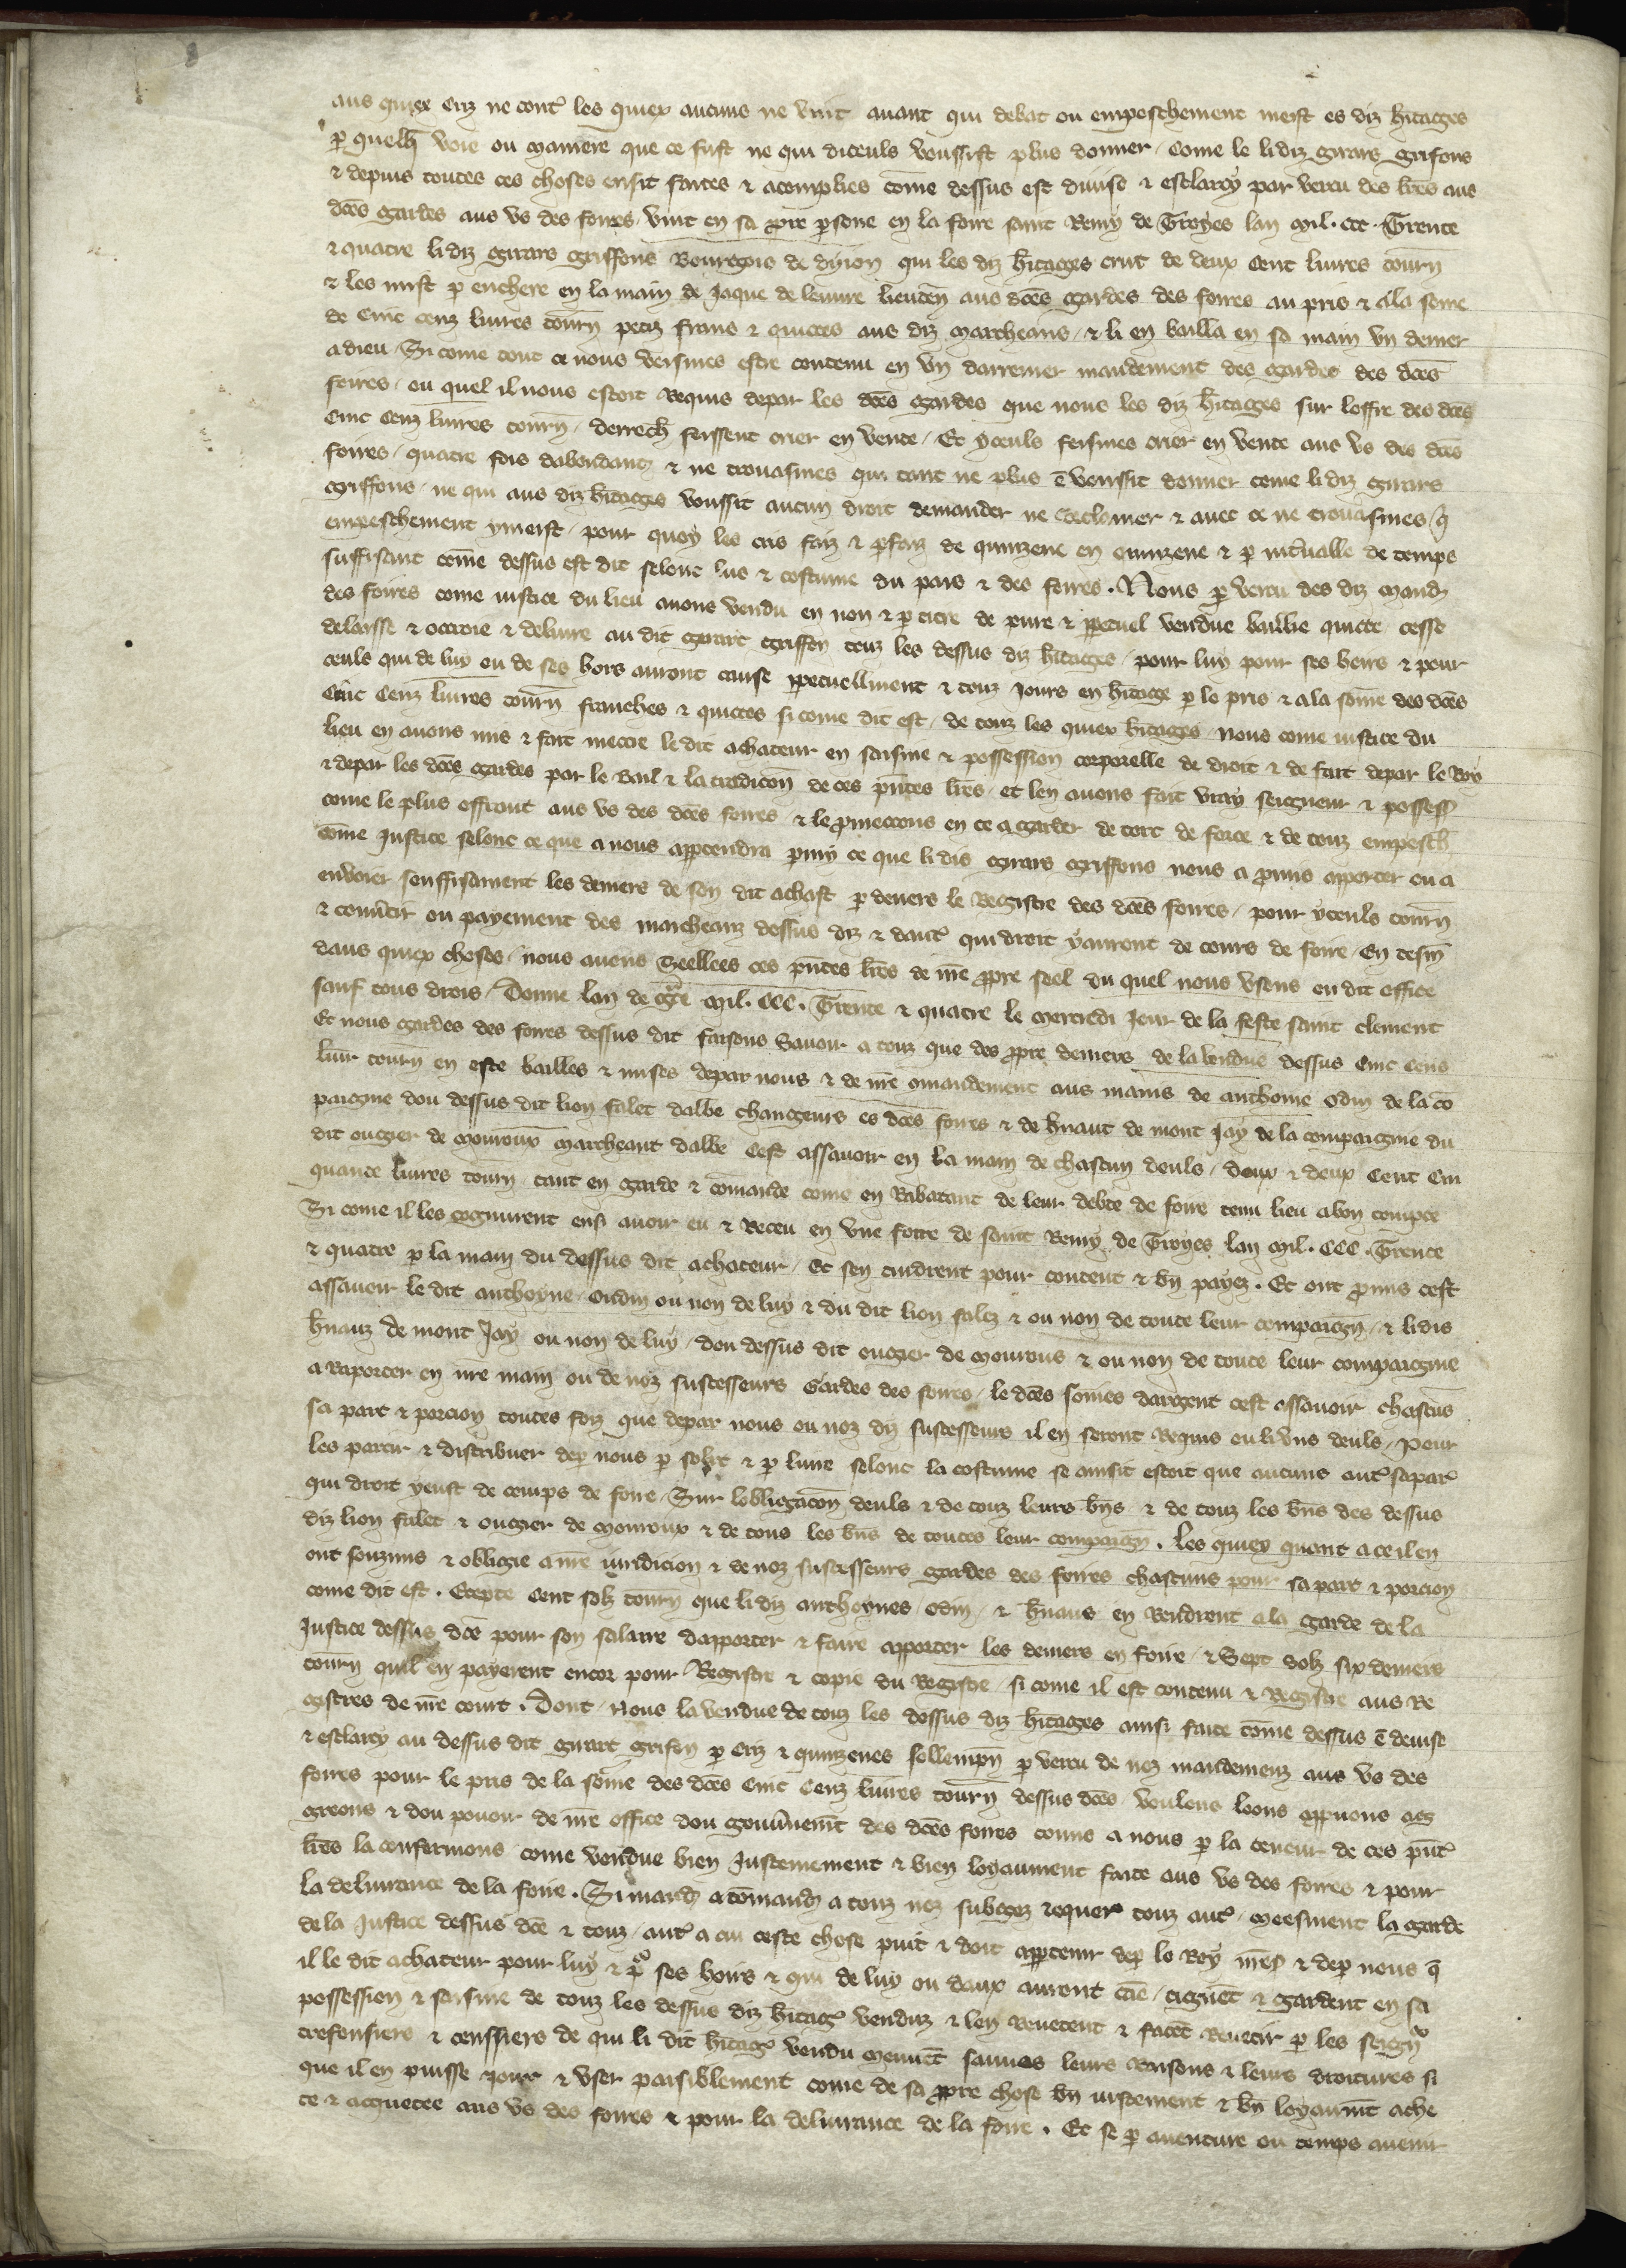 aus quiex criz ne contᷣ les quiex aucuns ne vint auant qui debat ou empeschement meist es diz hitages
p quelq̄ voie ou maniere que ce fust ne qui diceuls voussist plus donner / Come le lidiz girars grifons
& depuis toutes ces choses ensit faites & acomplies come dessus est diuise & esclarcy par vertu des lres aus
dces gardes aus vs des foires / vint en sa ppre psone en la foire saint Remy de Troyes lan Mil . CCC . Trente
& quatre lidiz girars griffons Bourgois de dijon qui les diz hitages crut de deux Cent liures tourn
& les mist p enchere en la main de Jaque de leuure lieuten aus dces gardes des foires au pris & a la some
de Cinc cenz liures tourn petiz frans & quictes aus diz marcheans / & li en bailla en sa main vn denier
a dieu / Si come tout ce nous veismes estre contenu en vn darrenier mandement des gardes des dces
foires / ou quel il nous estoit Requis depar les dces gardes que nous les diz hitages sur loffre des dces
Cinc Cenz liures tourn / derrech feissent crier en vente / Et yceuls feismes crier en vente aus vs des dces
foires / quatre fois dabondant & ne trouasmes qui tant ne plus ē vousist donner come lidiz girars
griffons / ne qui aus diz hitages voussit aucun droit demander ne Reclamer & auec ce ne trouasmes q̄
empeschement y meist / pour quoy les cris faiz & pfaiz de quinzene en quinzene & p inteualle de temps
suffisant come dessus est dit selonc lus & costume du pais & des foires . Nous p vertu des diz mand
des foires come iustice du lieu auons vendu en non & p titre de pure & ppetuel vendue baillie quicte cesse
delaisse & octroie & deliure au dit girart griffon touz les dessus diz hitages / pour luy pour ses heirs & pour
ceuls qui de luy ou de ses hors auront cause ppetuellment & touz jours en hitage p le pris & a la some des dces
Cinc Cenz liures tourn franches & quictes si come dit est / de touz les quiex hitages / nous come iustice du
lieu en auons mis & fait mectre le dit achateur en saisine & possession corporelle de droit & de fait depar le Roy
& depar les dces gardes par le Bail & la tradicon de ces pntes lres / et len auons fait vray seigneur & possess
come le plus offrant aus vs des dces foires / & le pmectons en ce a garder de tort de force & de touz empesch
come Justice selonc ce que a nous apptendra pmy ce que li dis girars griffons nous a pmis apporter ou a
enuoier souffisament les deniers de son dit achast p deuers le Registre des dces foires / pour yceuls tourn
& conutir ou payement des marcheanz dessus diz & dautᷣ qui droit y auront de cours de foire / En tesm
daus quiex choses / nous auens Seellees ces pntes lres de nre ppre seel du quel nous vsons ou dit office
sauf tous drois / Donne lan de grace Mil . CCC . Trente & quatre le mercredi jeur de la feste saint clement
Et nous gardes des foires dessus dit faisons Sauoir a touz que des ppre deniers de la vendue dessus Cinc Cens
liur tourn en este bailles & mises depar nous & de nre omandement aus mains de anthoine Odin de la co
paignie dou dessus dit lion falet dalbe changeurs es dces foires & de bnaut de mont Jay de la compaignie du
dit ougier de Mouroux marcheant dalbe Cest assauoir en la main de chascun deuls / deux & deux Cent Cin
quante liures tourn / tant en garde & comande come en Rabatant de leur debte de foire tenu lieu a bon compte
Si come il les cognurent ensi auoir eu & Receu en vne foire de saint Remy de Troyes lan Mil . CCC . Trente
& quatre p la main du dessus dit achateur / Et sen tindrent pour content & bn payez . Et ont pmis cest
assauoir le dit anthoyne Ondin ou non de luy & du dit lion faletz & ou non de toute leur compaign / & li dis
bnauz de mont Jay ou non de luy / dou dessus dit ougier de Mourous & ou non de toute leur compaignie
a Raporter en nre main ou de noz successeurs Gardes des foires / le dces somes dargent cest assauoir chascus
sa part & porcion toutes foiz que depar nous ou noz diz successeurs il en seront Requis ou li vns deuls / Pour
les partir & distribuer dep nous p solt & p liure selonc la costume se ainsit estoit que aucuns autᷣ saparᷣ
qui droit yeust de temps de foire / Sur lobligacon deuls & de touz leurs bns & de touz les bns des dessus
diz lion falet & ougier de Mouroux & de tous les bns de toutes leur compaign . Les quiex quant a ce il en
ont souzmis & obligie a nre iuridicion & de noz successeurs gardes des foires chascuns pour sa part & porcion
come dit est . Excepte Cent solz tourn que li diz anthoynes / Odin / & bnaus en Rendirent a la garde de la
Justice dessus dce pour son salaire dapporter & faire apporter les deniers en foire / & Sept solz six deniers
tourn quil en payerent encor pour Registre & copie du Registre / si come il est contenu & Registre aus Re
gistres de nre court . Dont / Nous la vendue de touz les dessus diz hitages ainsi faite come dessus ē deuise
& esclarcy au dessus dit girart grifon p criz & quinzenes sollempn p vertu de noz mandemenz aus vs des
foires pour le pris de la some des dces Cinc Cenz liures tourn dessus dces / voulens loons appuons ag
greons & dou pouoir de nre office dou gouunemt des dces foires comis a nous p la teneur de ces pntᷣ
lres la confermons come vendue bien Justemement & bien loyaument faite aus vs des foires & pour
la deliurance de la foire . Si mand a comand a touz noz subgez requerᷣ touz autᷣ / Meesment la garde
de la Justice dessus dce & touz / autᷣ a cui ceste chose puit & doit apptenir dep le Roy nres & dep nous q̄
il le dit achateur pour luy & pᵒ ses hoirs & qui de luy ou deaux auront cāe / tignēt & gardent en sa
possession & saisine de touz les dessus diz hitagᷣ venduz & len Reuetent & facēt Reuetir p les seigᷣ
trefonsiers & censsiers de qui li dit hitagᷣ vendu meuuēt sauues leurs Raisons & leurs droitures si
que il en puisse jouir & vser paisiblement come de sa ppre chose bn iustement & bn loyaumt ache
te & acquetee aus vs des foires & pour la deliurance de la foire . Et se p auenture ou temps auenir